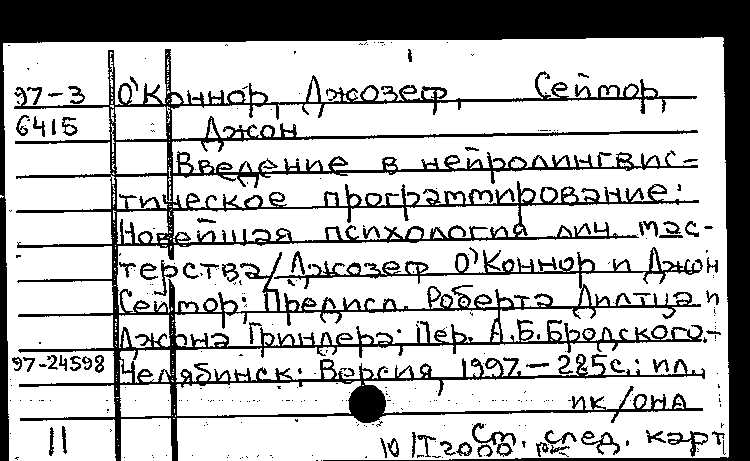 97-3 О'Коннор, Джозеф, Сеймор,
6415 Джон
Введение в нейролингвис=
тическое программирование:
Новейшая психология лич. мас-
терства/Джозеф О'Коннор и Джон
Сеймор; Предисл. Роберта Дилтца и
Джона Гриндера; Пер. А.Б.Бродского.-
97-24598 Челябинск: Версия, 1997.- 285с.: ил.,
ик/ОНА
11 Ст. след. карт